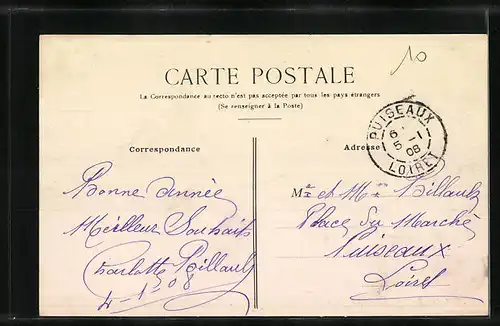 10
CARTE POSTALE
La Correspondance au recto n'est pas acceptée par tous les pays étrangers
(Se renseigner à la Poste)
PUISEAUX
6
5 -1
08
LOIRET
Correspondance
Adresse
Bonne Année
Meilleur Souhaits
Charlotte Billault
4-1-08
Mr et Mme Billault
Place du Marché
Puiseaux
Loiret